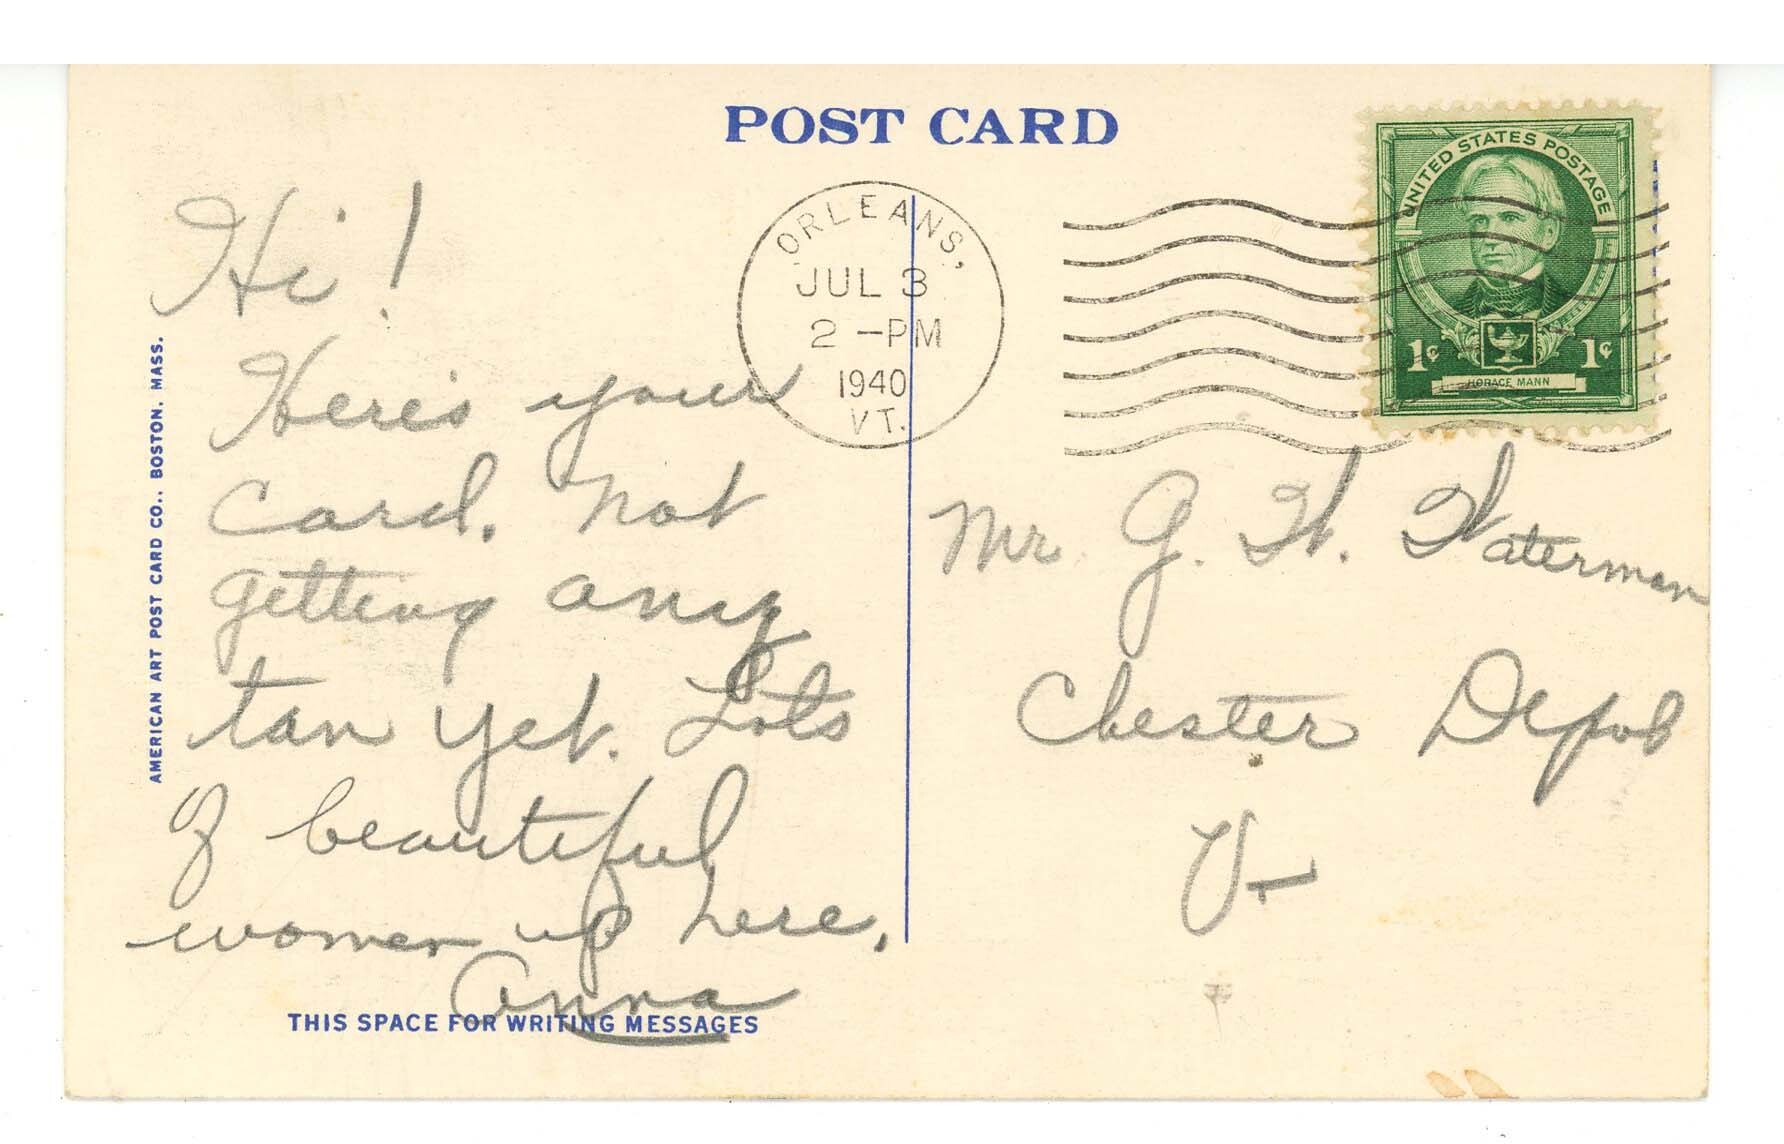 POST CARD
UNITED STATES POSTAGE
1¢ 1¢
HORACE MANN
ORLEANS,
JUL 3
2 -PM
1940
VT.
Hi!
Here's your
card. Not
getting any
tan yet. Lots
of beautiful
women up here.
Anna
Mr. G. H. Waterman
Chester Depot
Vt
AMERICAN ART POST CARD CO., BOSTON, MASS.
THIS SPACE FOR WRITING MESSAGES